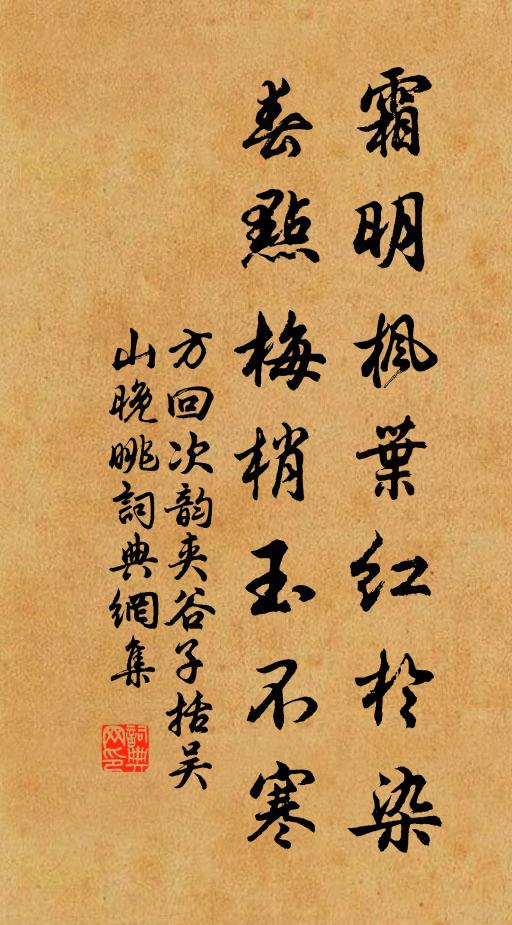 霜明枫葉红於染
春點梅梢玉不寒
方回次韵夹谷子括吴
山晚眺詞典網集
詞典
网印